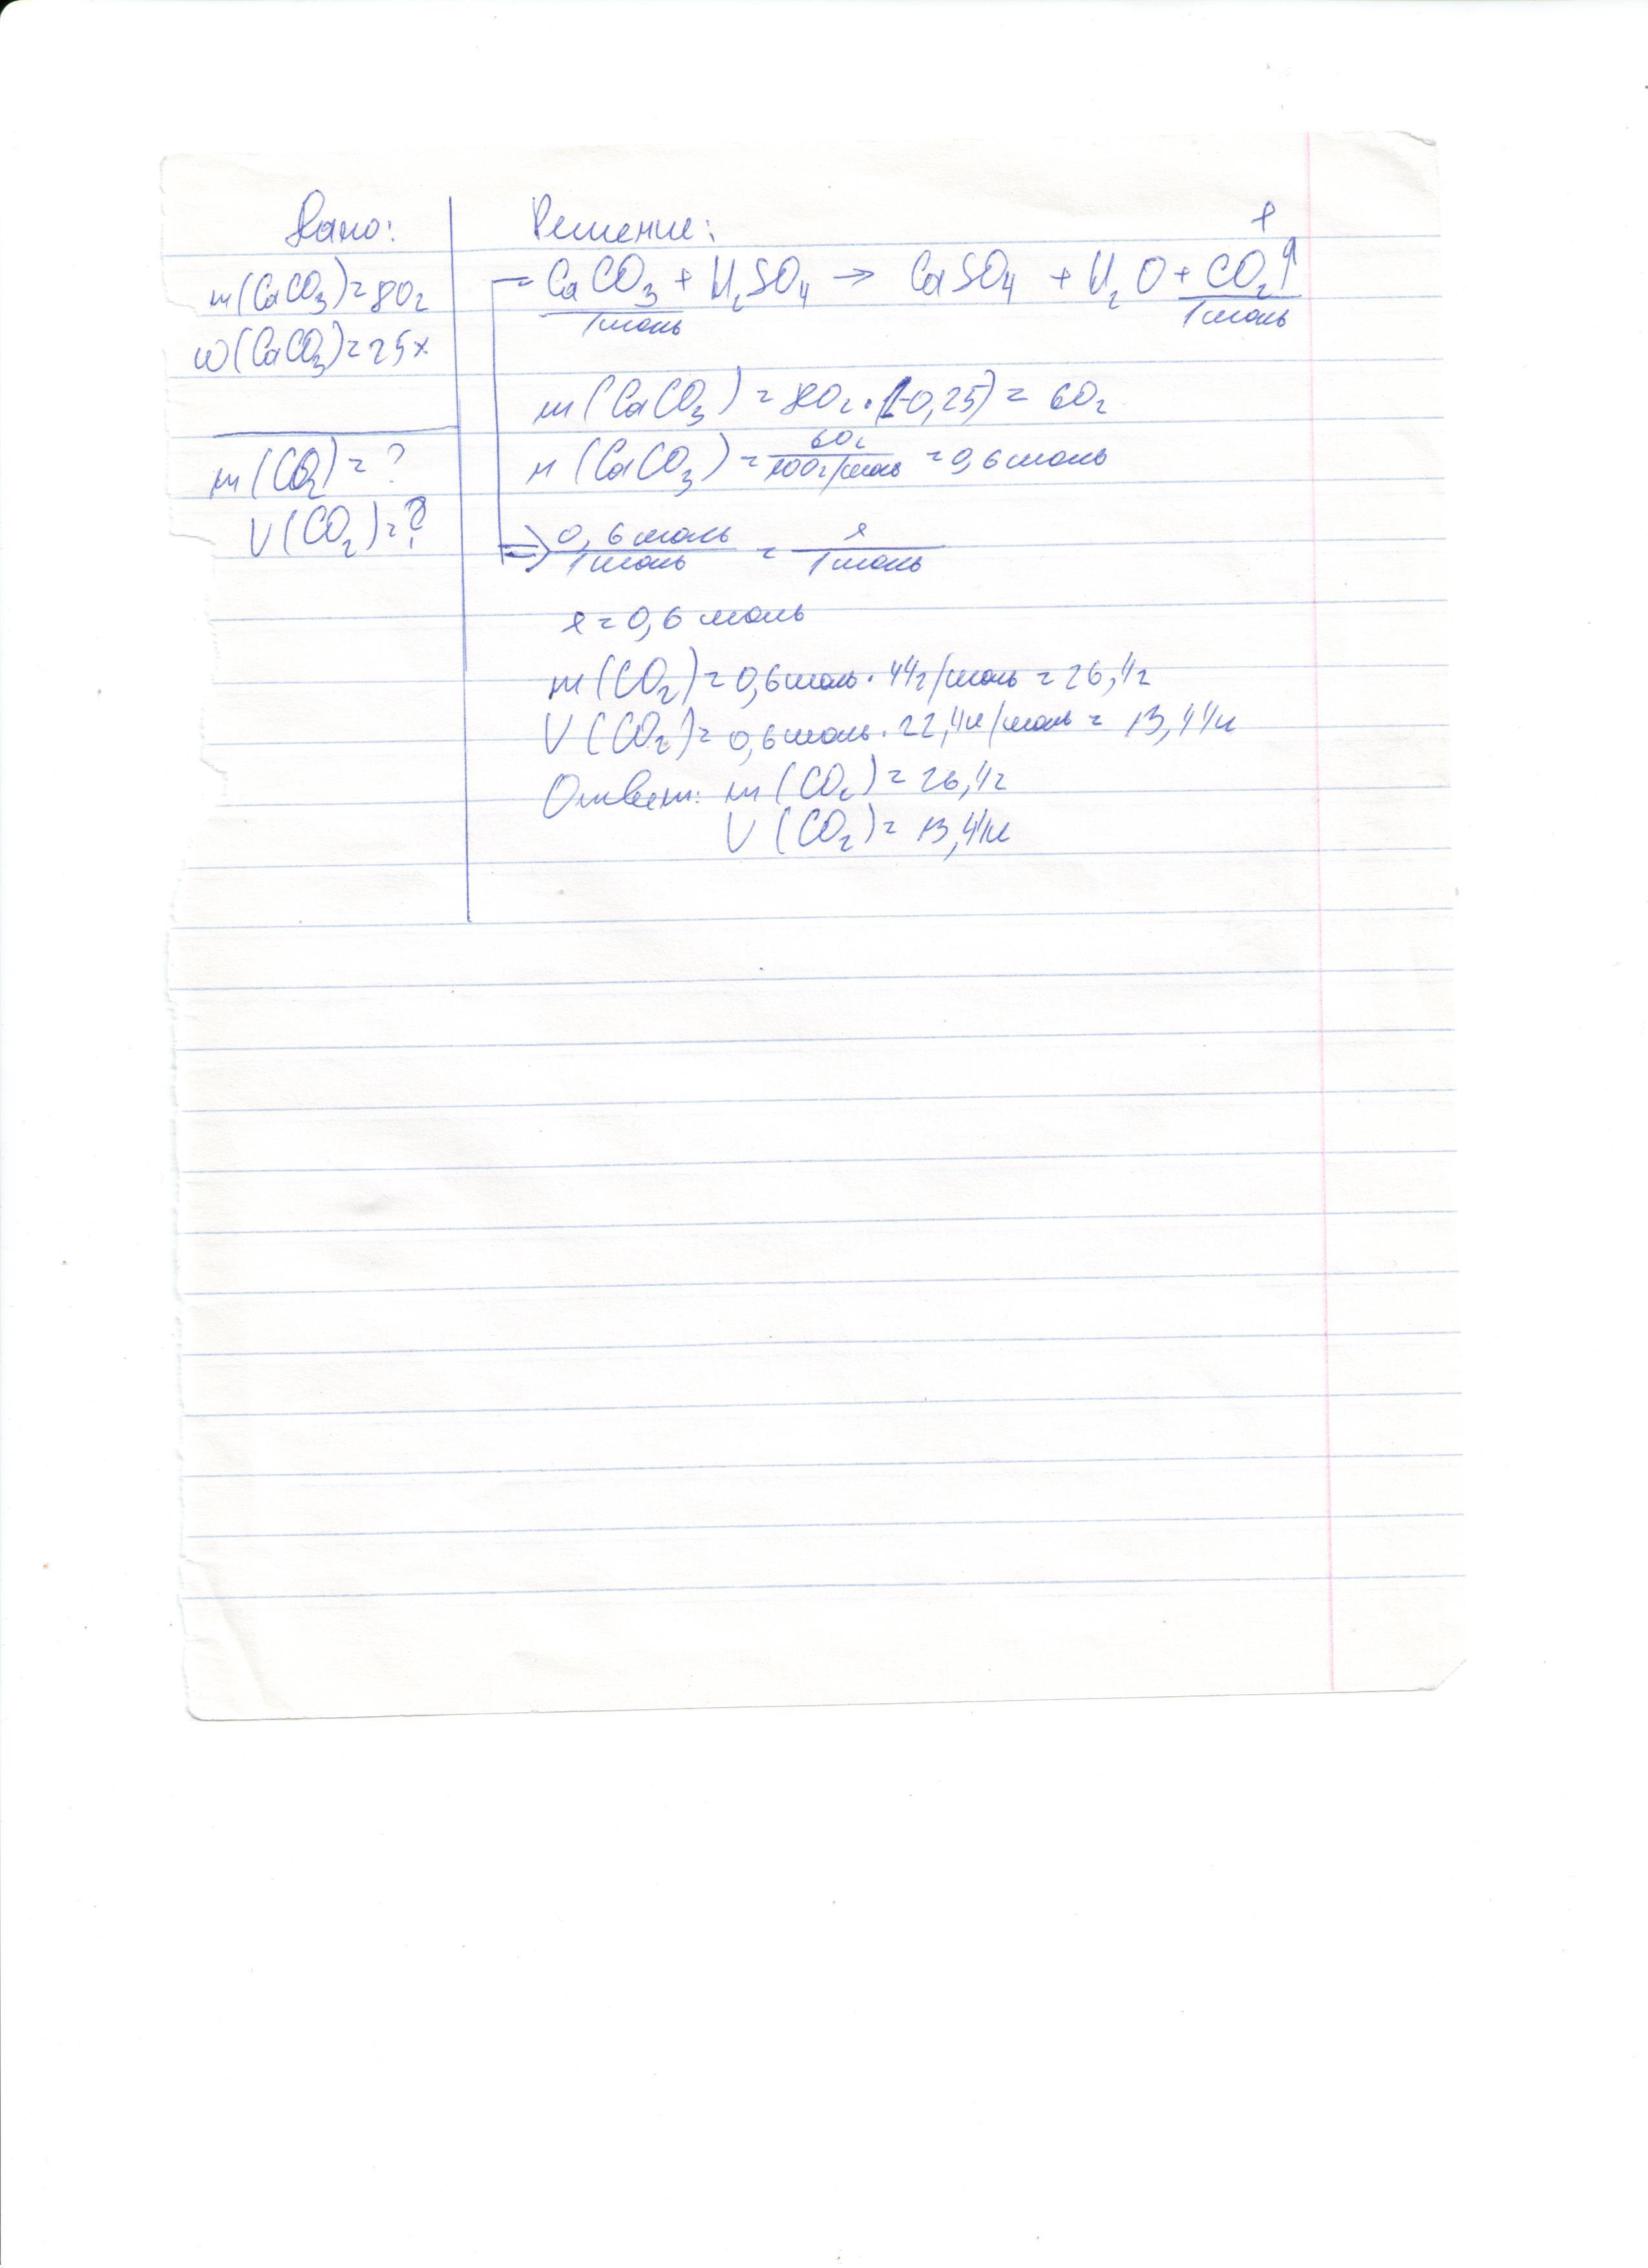 Дано:
m(CaCO3)=80г
w(CaCO3)=25%
m(CO2)=?
V(CO2)=?
Решение:
x
CaCO3 + H2SO4 → CaSO4 + H2O + CO2↑
1моль 1моль
m(CaCO3)=80г·(1-0,25)=60г
n(CaCO3)=60г/100г/моль=0,6моль
=> 0,6моль/1моль = x/1моль
x=0,6 моль
m(CO2)=0,6моль·44г/моль=26,4г
V(CO2)=0,6моль·22,4л/моль=13,44л
Ответ: m(CO2)=26,4г
V(CO2)=13,44л